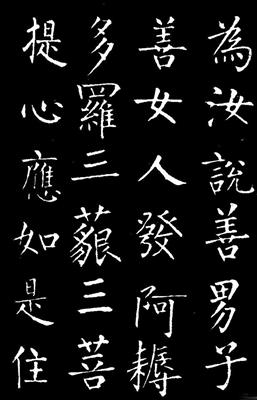 為汝說善男子
善女人發阿耨
多羅三藐三菩
提心應如是住